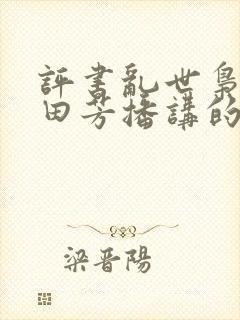 評書亂世梟
田芳播講的
梁晋陽